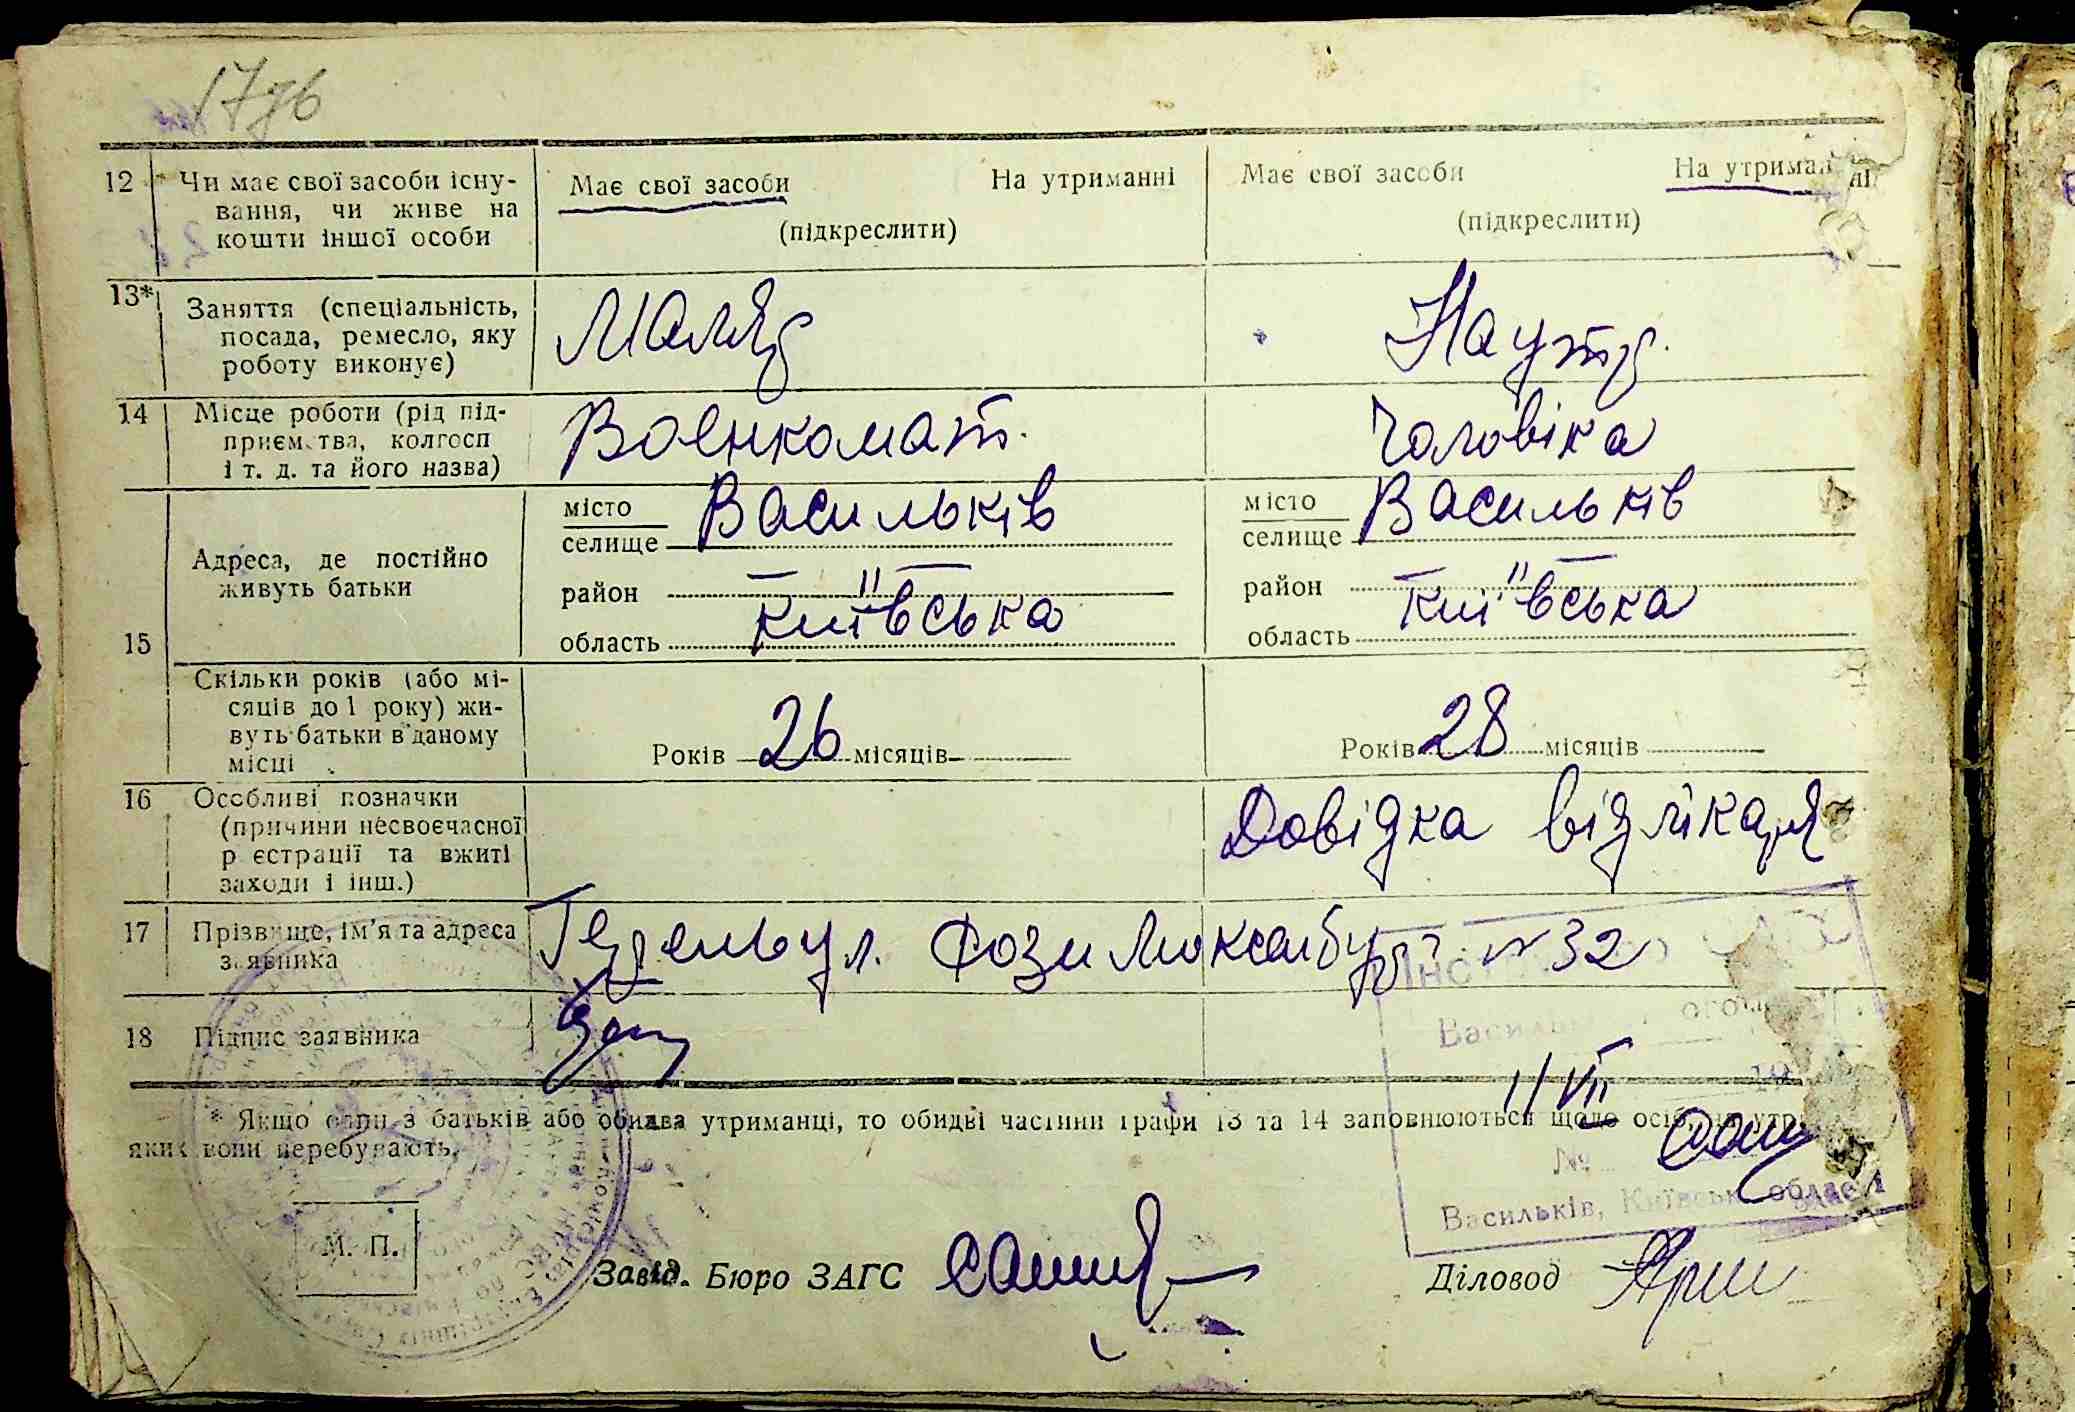 17дв
12 Чи має свої засоби існу-
вання, чи живе на
кошти іншої особи
Має свої засоби На утриманні
(підкреслити)
Має свої засоби На утриманні
(підкреслити)
13* Заняття (спеціальність,
посада, ремесло, яку
роботу виконує)
Маляр
На утр.
14 Місце роботи (рід під-
приємства, колгосп
і т. д. та його назва)
Воєнкомат.
Чоловіка
15 Адреса, де постійно
живуть батьки
місто
селище Васильків
район — " —
область Київська
місто
селище Васильків
район — " —
область Київська
Скільки років (або мі-
сяців до 1 року) жи-
вуть батьки в даному
місці
Років 26 місяців
Років 28 місяців
16 Особливі позначки
(причини несвоєчасної
реєстрації та вжиті
заходи і інш.)
Довідка від лікаря
17 Прізвище, ім'я та адреса
заявника
ул. Рози Люксембург №32
18 Підпис заявника
* Якщо один з батьків або обидва утриманці, то обидві частини графи 13 та 14 заповнюються щодо осіб, на утр
яких вони перебувають.
11/VII
№
Васильків, Київської області
М. П.
Завід. Бюро ЗАГС
Діловод